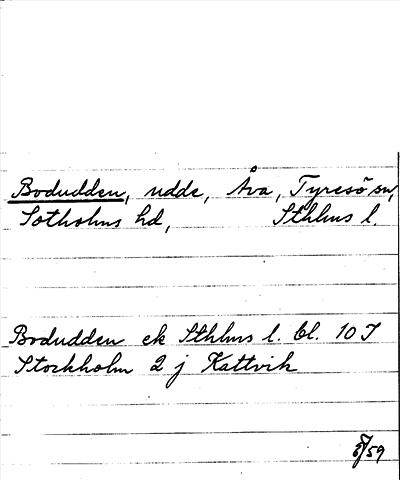 Bodudden, udde, Åva, Tyresö sn,
Sotholms hd, Sthlms l.
Bodudden ek Sthlms l. bl. 10 J
Stockholm 2 j Kattvik
59